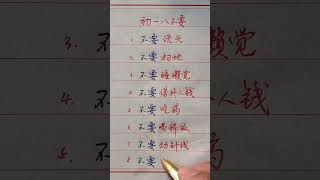 初一八不要
1. 不要洗头
2. 不要扫地
3. 不要睡懒觉
4. 不要借外人钱
5. 不要吃药
6. 不要喝稀饭
7. 不要动针线
8. 不要
3.
懒觉
4.
人钱
5.